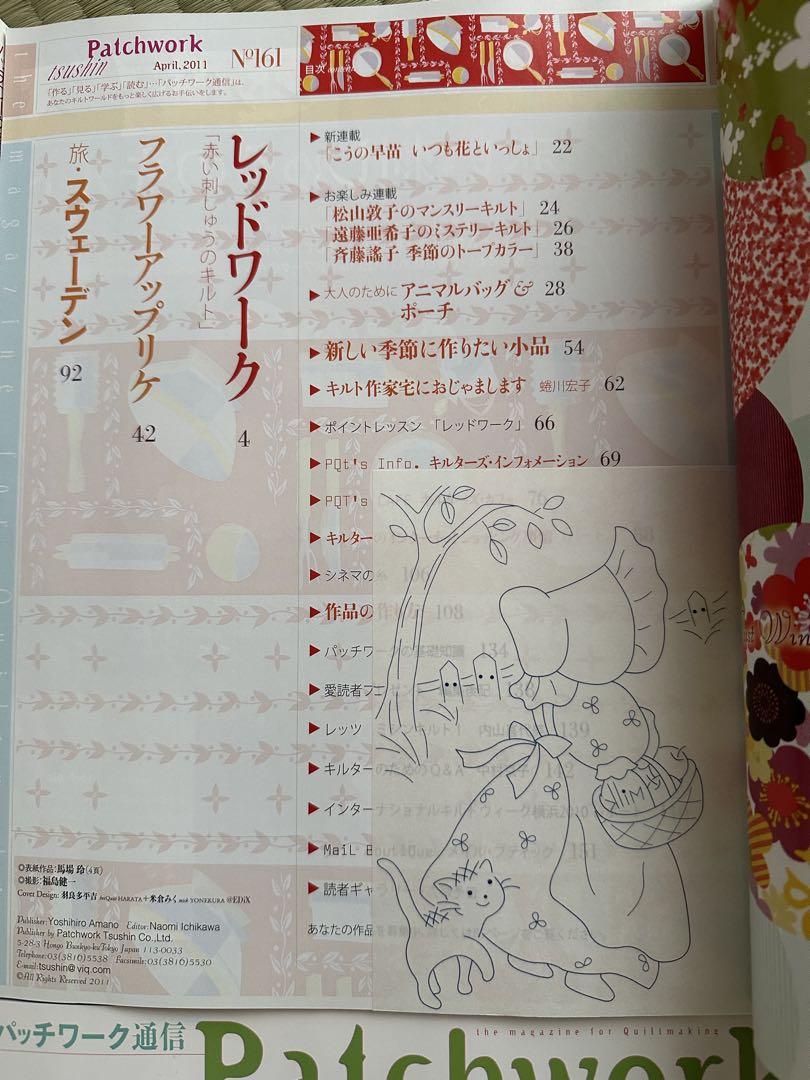 Patchwork
tsushin
April, 2011
No161
「作る」「見る」「学ぶ」「読む」…「パッチワーク通信」は、
あなたのキルトワールドをもっと楽しく広げるお手伝いをします。
目次 contents
レッドワーク 4
「赤い刺しゅうのキルト」
フラワーアップリケ 42
旅・スウェーデン 92
▶新連載
「こうの早苗 いつも花といっしょ」 22
▶お楽しみ連載
「松山敦子のマンスリーキルト」 24
「遠藤亜希子のミステリーキルト」 26
「斉藤謠子 季節のトープカラー」 38
▶大人のために アニマルバッグ& 28
ポーチ
▶新しい季節に作りたい小品 54
▶キルト作家宅におじゃまします 蜷川宏子 62
▶ポイントレッスン 「レッドワーク」 66
▶PQt's Info. キルターズ・インフォメーション 69
▶PQT's 76
▶キルター
▶シネマの 106
▶作品の作り方 108
▶パッチワークの基礎知識 134
▶愛読者プレゼント 編集後記 138
▶レッツ ミシンキルト! 139
▶キルターのためのQ&A 142
▶インターナショナルキルトウィーク横浜2010
▶MaiL Boutique 151
▶読者ギャラ
あなたの作品
MILK
Win
◎表紙作品:馬場 玲(4頁)
◎撮影:福島健一
Cover Design: 羽良多平吉 heiQuiti HARATA+米倉みく miuk YONEKURA @EDiX
Publisher:Yoshihiro Amano Editor:Naomi Ichikawa
Publisher by Patchwork Tsushin Co.,Ltd.
5-28-3 Hongo Bunkyo-ku Tokyo Japan 113-0033
Telephone:03(3816)5538 Facsimile:03(3816)5530
E-mail:tsushin@viq.com
©All Rights Reserved 2011
パッチワーク通信
the magazine for Quiltmaking
Patchwork